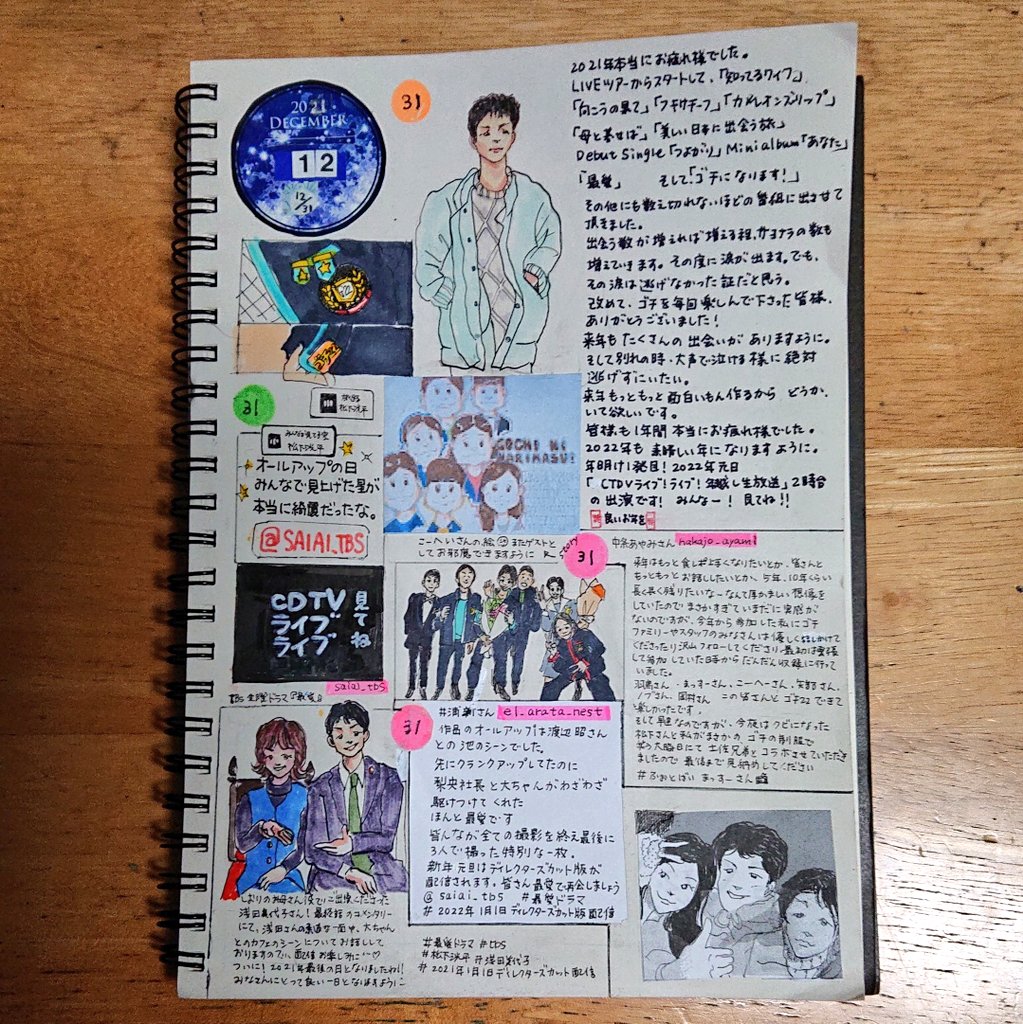 2021
DECEMBER
12
12/31
31
2021年本当にお疲れ様でした。
LIVEツアーからスタートして、「知ってるワイフ」
「向こうの果て」「カメレオンズリップ」
「母と暮せば」「美しい日本に出会う旅」
Debut Single「つよがり」Mini album「あなた」
「最愛」 そして「ゴチになります！」
その他にも数え切れないほどの番組に出させて
頂きました。
出会う数が増えれば増える程、サヨナラの数も
増えていきます。その度に涙が出ます。でも、
その涙は逃げなかった証だと思う。
改めて、ゴチを毎回楽しんで下さった皆様、
ありがとうございました！
来年もたくさんの出会いがありますように。
そして別れの時、大声で泣ける様に絶対
逃げずにいたい。
来年もっともっと面白いもん作るから どうか、
いて欲しいです。
皆様も1年間本当にお疲れ様でした。
2022年も素晴しい年になりますように。
年明け1発目！2022年元日
「CTDVライブ！ライブ！年越し生放送」2時台
の出演です！みんなー！見てね!!
良いお年を
31
松下洸平
松下洸平
オールアップの日
みんなで見上げた星が
本当に綺麗だったな。
@SAIAI_TBS
GOCHI NI
NARIMASU!
こーへいさんの絵 またゲストと
してお邪魔できますように
story
31
CDTV
ライブ
ライブ
見てね
saiai_tbs
中条あやみさん nakajo_ayami
来年はもっと食し上手くなりたいとか、皆さんと
もっともっとお話ししたいとか、5年、10年くらい
長く長く残りたいなーなんて厚かましい想像を
していたのでまさかすぎていまだに実感が
ないのですが、今年から参加した私にゴチ
ファミリーやスタッフのみなさんは優しく話しかけて
くださったり沢山フォローしてくださり、最初は緊張
して参加していた日々からだんだん収録に行って
いました。
ノブさん、田村さん この皆さんとゴチ22できて
楽しかったです。
そして早速なのですが、今夜はクビになった
松下さんと私がまさかのゴチの制服で
大晦日にて土佐兄弟とコラボさせていただき
ましたので最後まで見納めしてください
まっすーさん
31
#浦新さん el_arata_nest
作品のオールアップは渡辺昭さん
との池のシーンでした。
先にクランクアップしてたのに
梨央社長と大ちゃんがわざわざ
駆けつけてくれた
ほんと最愛です
皆んなが全ての撮影を終え最後に
3人で撮った特別な一枚。
新年元旦はディレクターズカット版が
配信されます。皆さん最愛で再会しましょう
@saiai_tbs #最愛ドラマ
#2022年1月1日ディレクターズカット版配信
しおりの母さん役でご出演くださった
浅田美代子さん！最終話のコメンタリー
にて、浅田さんの素敵な一面や、大ちゃん
とのカフェのシーンについてお話しして
おりますので、配信お楽しみに…♡
ついに！2021年最後の日となりましたね!!
みなさんにとって良い一日となりますように
#最愛ドラマ #tbs
#松下洸平 #浅田美代子
#2021年1月1日ディレクターズカット配信